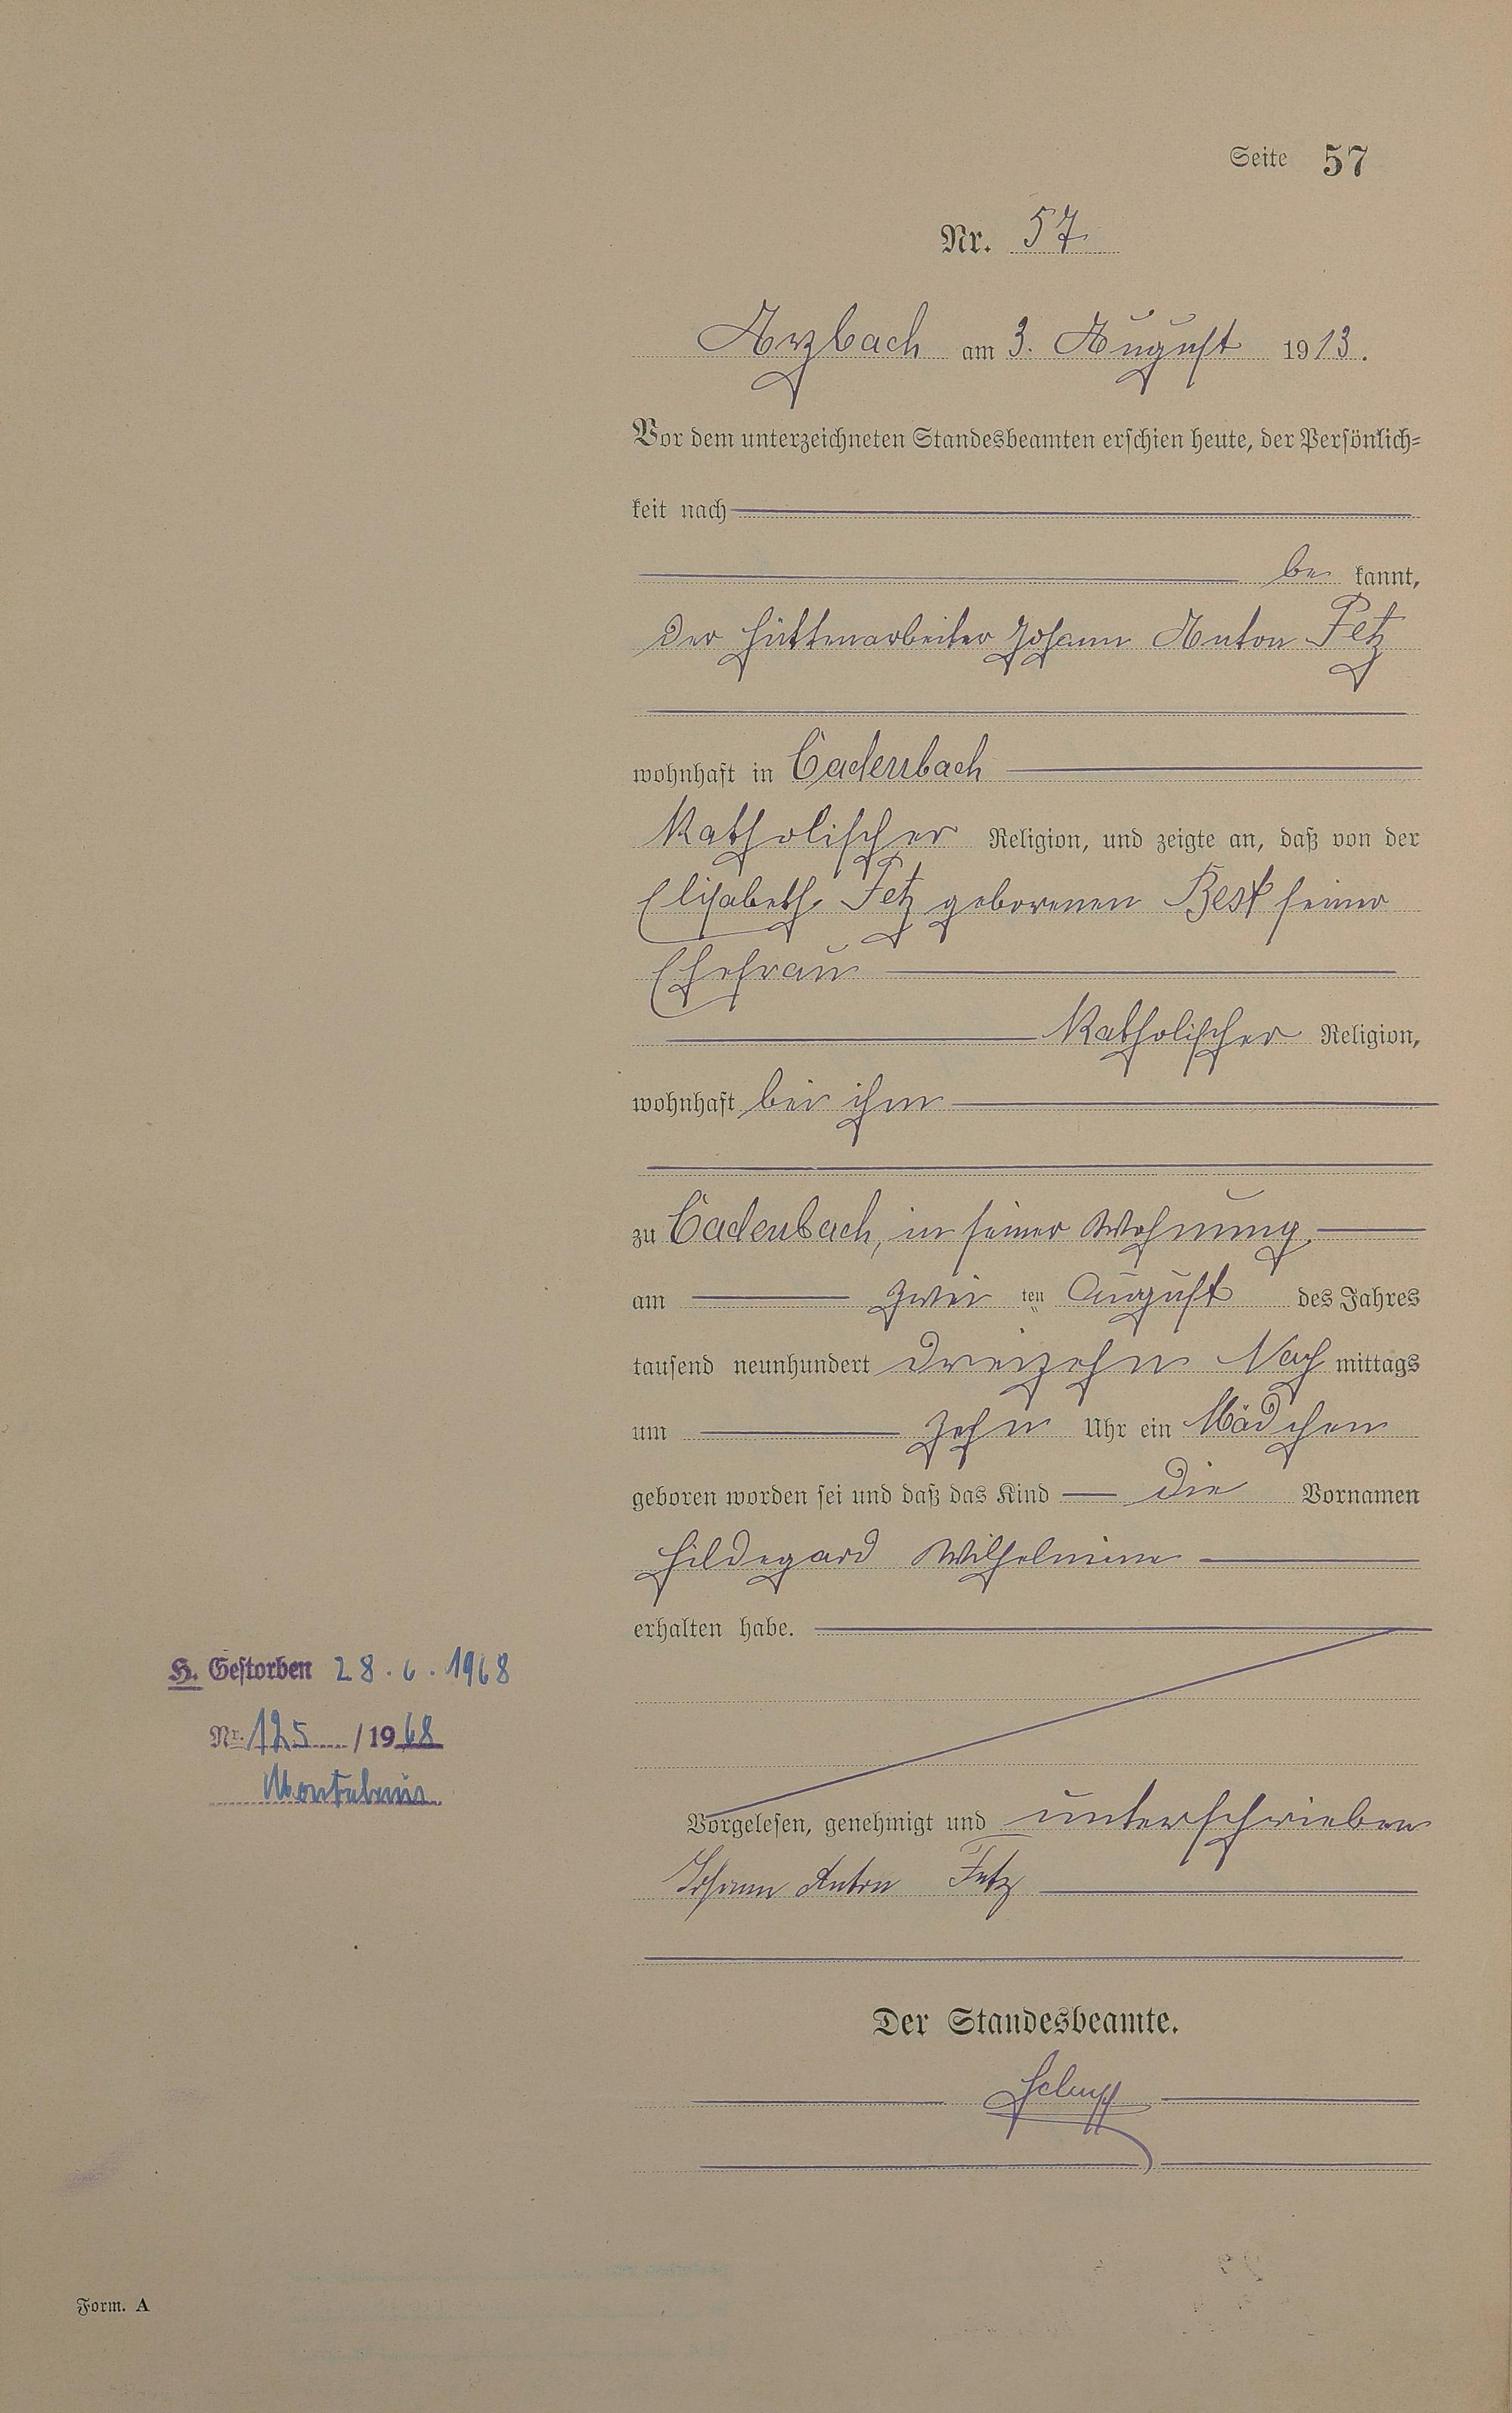 Seite 57
Nr. 57
Arzbach am 3. August 1913.
Vor dem unterzeichneten Standesbeamten erschien heute, der Persönlich-
keit nach
be kannt,
der Hüttenarbeiter Johann Anton Fetz
wohnhaft in Cadenbach
Katholischer Religion, und zeigte an, daß von der
Elisabeth Fetz geborenen Best seiner
Ehefrau
Katholischer Religion,
wohnhaft bei ihm
zu Cadenbach, in seiner Wohnung,
am zwei ten August des Jahres
tausend neunhundert dreizehn Nach mittags
um zehn Uhr ein Mädchen
geboren worden sei und daß das Kind die Vornamen
Hildegard Wilhelmine
erhalten habe.
H. Gestorben 28.6.1968
Nr. 125 / 1968
Montabaur
Vorgelesen, genehmigt und unterschrieben
Johann Anton Fetz
Der Standesbeamte.
Form. A